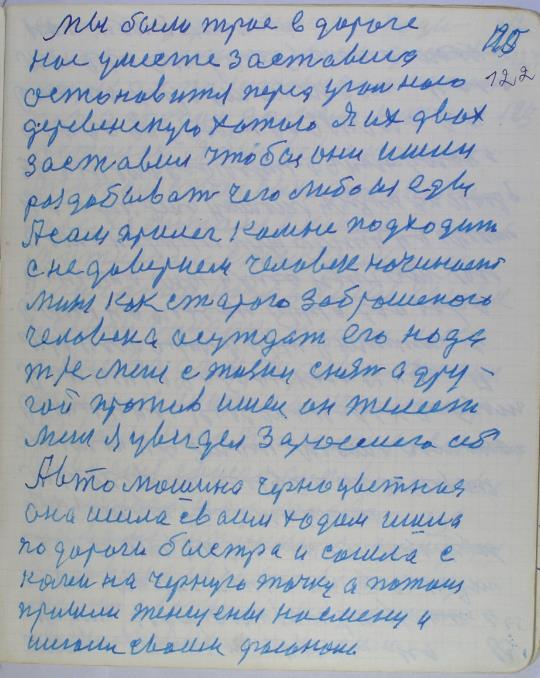 Мы было трое в дороге
125
нас уместе заставило
122
остановится перед угольного
деревенскую хатого Я их двох
заставил чтобы они ишли
раздобыват чего либо из еды
А сам прилег ко мне подходит
с недоверием человек начинает
миня как старого заброшеного
человека осуждат его нада
с жизни снят а дру-
гой против ишел он желеет
миня Я увидел
Автомашина черноцветная
она ишла своим ходом ишла
по дороги быстра и сошла с
на черную точку а потом
пришли женщены насмену и
своим